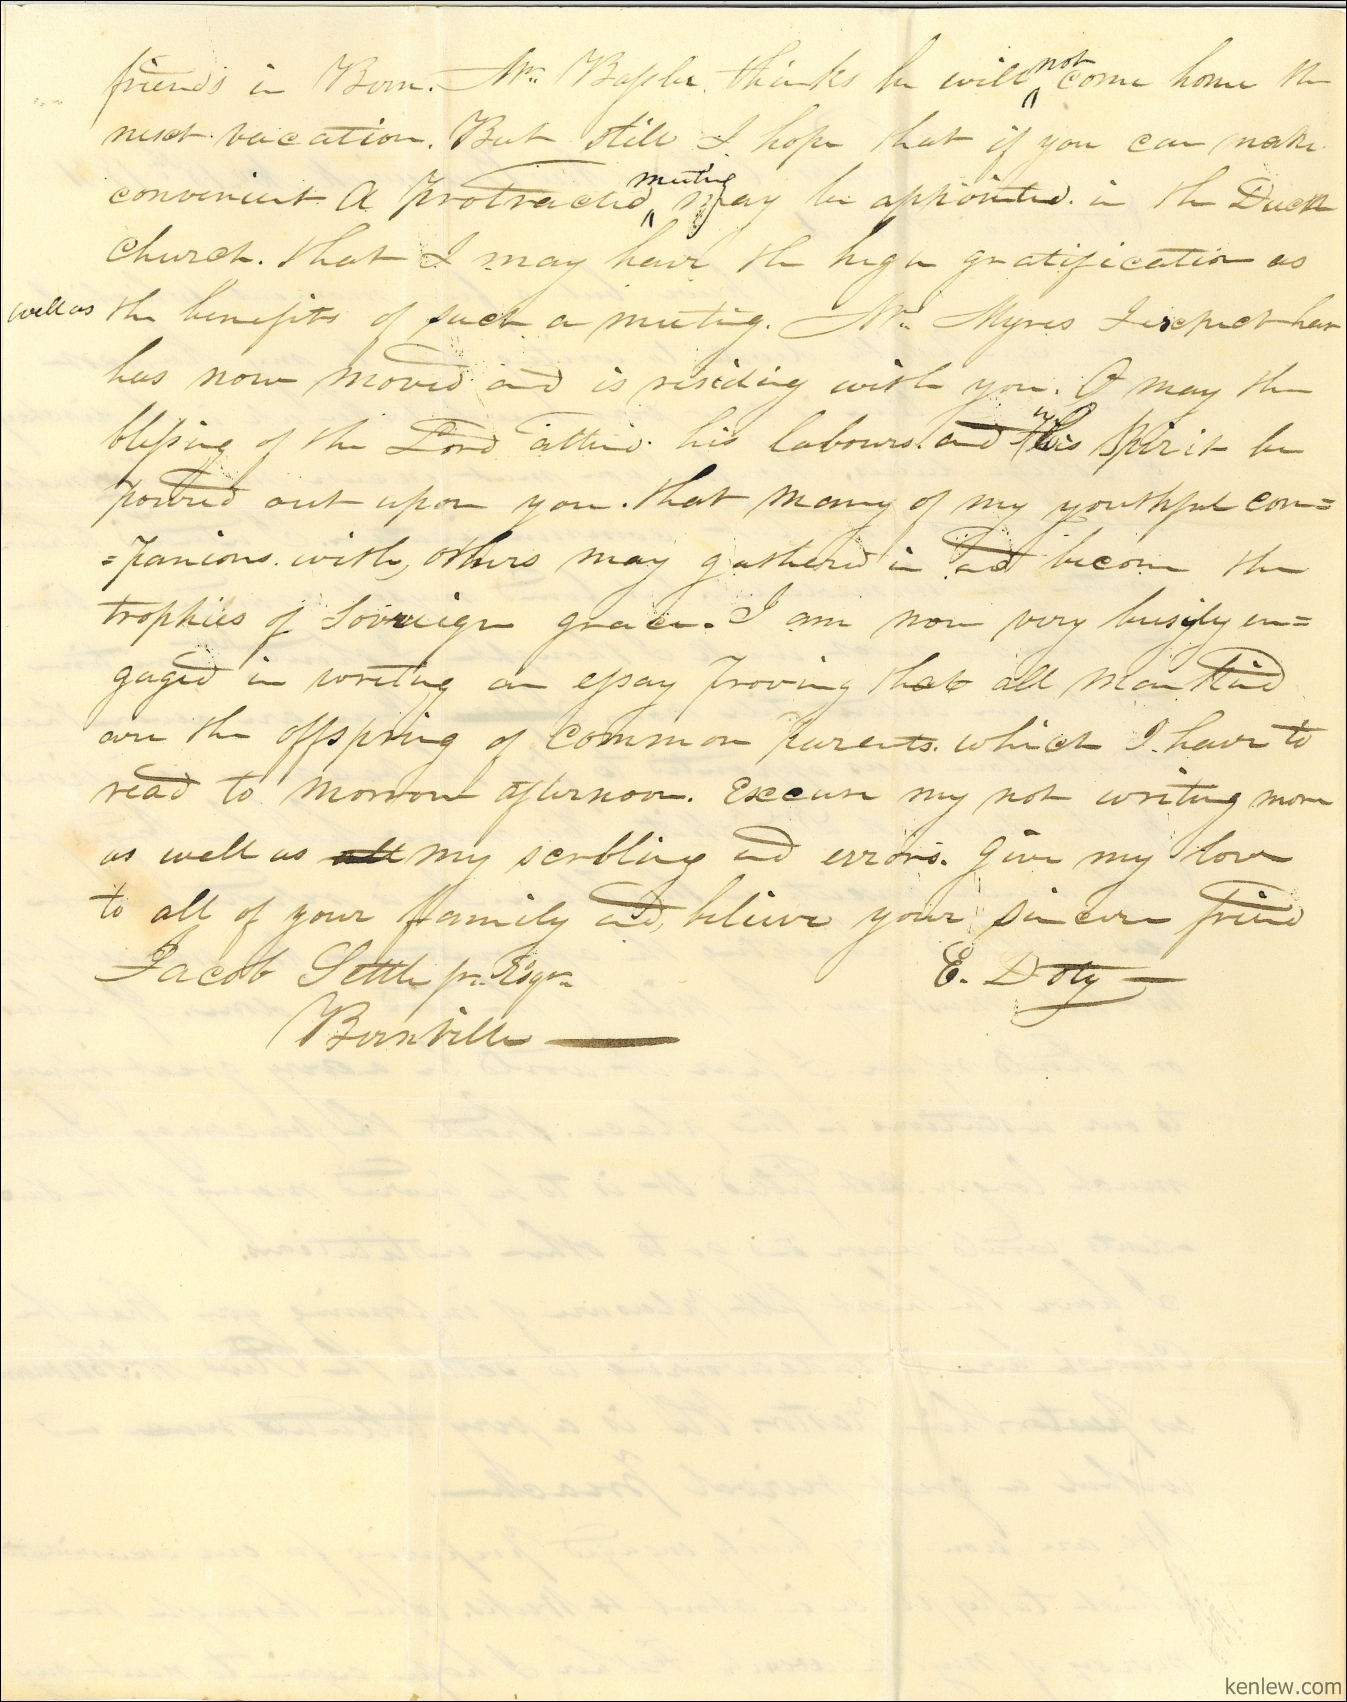 friends in Bern. Mr. Bassler thinks he will not come home the
next vacation. But still I hope that if you can make
convenient A protracted meeting may be appointed in the Duch
church. that I may have the high gratification as
well as the benefits of such a meeting. Mr. Myres I expect har
has now moved and is residing with you. O may the
blessing of the Lord attend his labours. and His Spirit be
poured out upon you. that many of my youthful com=
=panions. with others may gathered in and become the
trophies of Sovreign grace. I am now very busyly en=
gaged in writing an essay proving that all mankind
are the offspring of common Parents. which I have to
read to morrow afternoon. Excuse my not writing more
as well as all my scribling and errors. Give my love
to all of your family and believe your sincere friend
Jacob Settle jr. Esqr. E. Doty
Bernville
kenlew.com